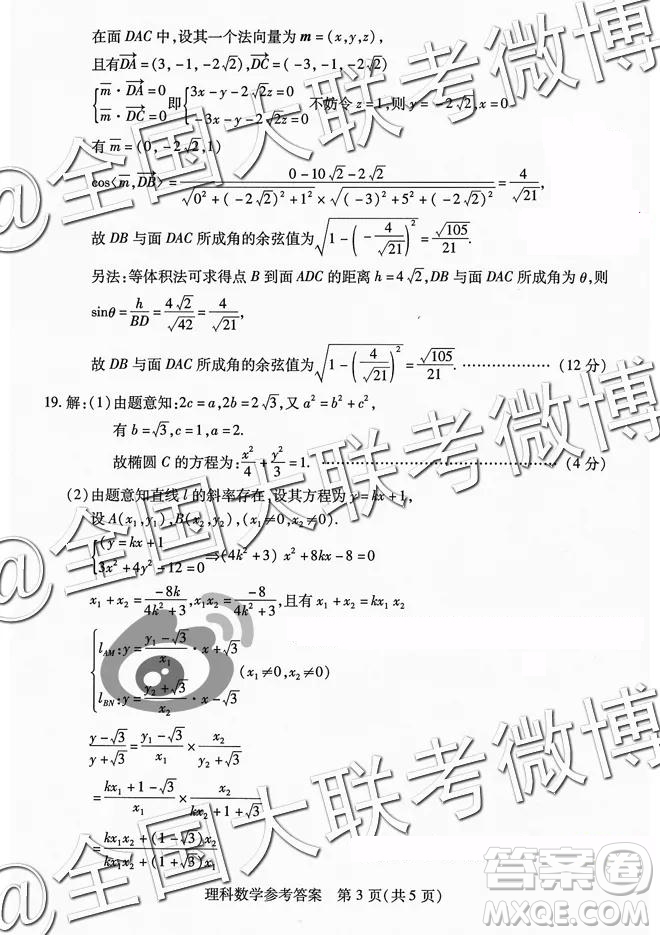 在面 DAC 中,设其一个法向量为 m = (x,y,z),
且有$\overrightarrow{DA}$ = (3, -1, -2√2),$\overrightarrow{DC}$ = ( -3, -1, -2√2)
{m · DA = 0 m · DC = 0 即 {3x - y - 2√2z = 0 -3x - y - 2√2z = 0 不妨令 z = 1,则 y = -2√2, x = 0
有 m = (0, -2√2, 1)
cos⟨m,DB⟩ = (0 - 10√2 - 2√2)/(√(0² + ( -2√2)² + 1²) × √(( -3)² + 5² + ( -2√2)²)) = 4/√21,
故 DB 与面 DAC 所成角的余弦值为 √(1 - ( - 4/√21)²) = √105/21.
另法:等体积法可求得点 B 到面 ADC 的距离 h = 4√2, DB 与面 DAC 所成角为 θ,则
sinθ = h/BD = 4√2/√42 = 4/√21,
故 DB 与面 DAC 所成角的余弦值为 √(1 - (4/√21)²) = √105/21. ………………… (12 分)
19. 解:(1)由题意知:2c = a,2b = 2√3,又 a² = b² + c²,
有 b = √3, c = 1, a = 2.
故椭圆 C 的方程为: x²/4 + y²/3 = 1. ………………………………………… (4 分)
(2)由题意知直线 l 的斜率存在,设其方程为 y = kx + 1,
设 A(x₁,y₁),B(x₂,y₂),(x₁≠0,x₂≠0).
{(y = kx + 1 3x² + 4y² - 12 = 0 ⇒(4k² + 3) x² + 8kx - 8 = 0
x₁ + x₂ = -8k/(4k² + 3), x₁x₂ = -8/(4k² + 3), 且有 x₁ + x₂ = kx₁ x₂
{l_AM: y = (y₁ - √3)/x₁ · x + √3 l_BN: y = (y₂ + √3)/x₂ · x - √3 (x₁≠0,x₂≠0)
(y - √3)/(y + √3) = (y₁ - √3)/x₁ × x₂/(y₂ + √3)
= (kx₁ + 1 - √3)/x₁ × x₂/(kx₂ + 1 + √3)
= (kx₁x₂ + (1 - √3)x₂)/(kx₁x₂ + (1 + √3)x₁)
理科数学参考答案 第 3 页(共 5 页)
@全国大联考微博
@全国大联考微博
@全国大联考微博
答案卷
MXQE.COM